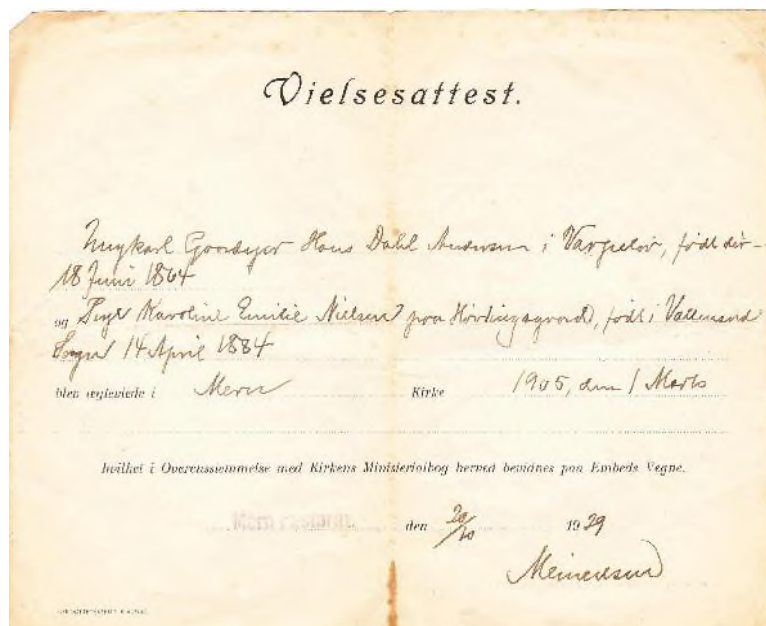 Vielsesattest.
Ungkarl Gaardejer Hans Dahl Andersen i Vargelør, født der
18 Juni 1864
og Pige Karoline Emilie Nielsen paa Høvdingsgaard, født i
Sogn 14 April 1884
blev ægteviede i Mern Kirke 1905, den 1 Marts
hvilket i Overensstemmelse med Kirkens Ministerialbog herved bevidnes paa Embeds Vegne.
Mern Pastorat. den 20/10 1939